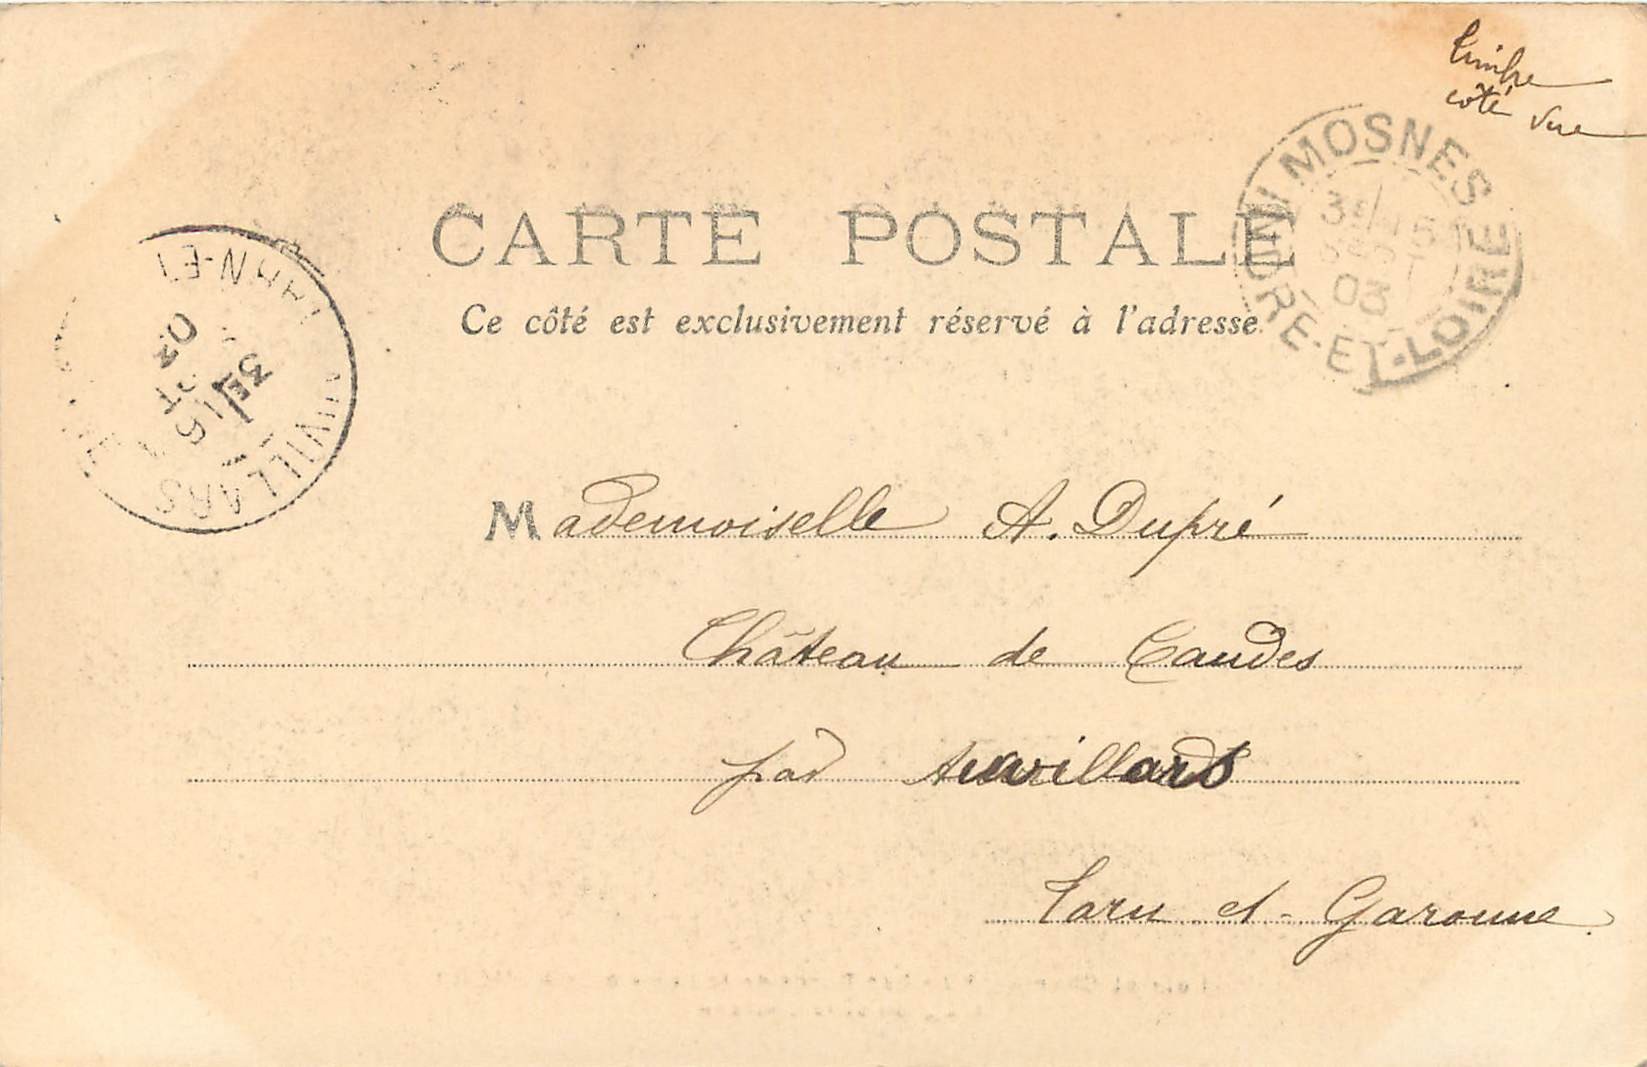 Timbre
côté vue
MOSNES
INDRE-ET-LOIRE
03
CARTE POSTALE
Ce côté est exclusivement réservé à l'adresse
TARN-ET
AUVILLARS
3E
16
03
Mademoiselle A. Dupré
Château de Caudes
par Auvillars
Tarn et-Garonne